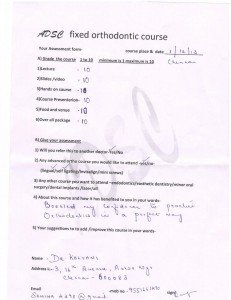 ADSC fixed orthodontic course
Your Assessment form-
course place & date 1/12/13
Chennai
A) Grade the course 1 to 10 minimum is 1 maximum is 10
1)Lecture - 10
2)Slides /video - 10
3)Hands on course - 10
4)Course Presentation- 10
5)Food and venue - 10
6)Over all package - 10
B) Give your assessment
1) Will you refer this to another doctor-Yes/No
2) Any advanced ortho course you would like to attend -yes/no-
(lingual/self ligating/invisalign/mini screws)
3) Any other course you want to attend -
4) About this course and how it has benefited to you in your words:
Boosted my confidence to practice
Orthodontics in a perfect way
5) Your suggestions to add /improve this course in your words:
Name - Dr
Address:- 3, 16th Avenue,
Chennai - 600083
Email
mob no -
sign